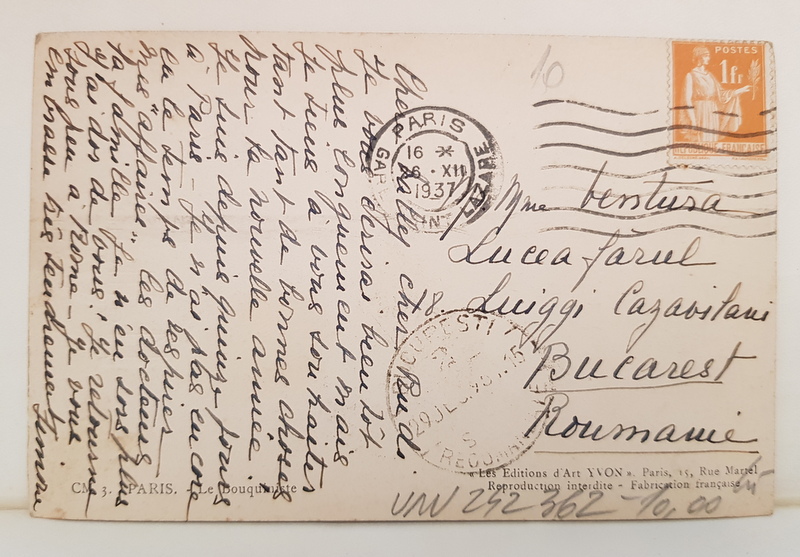 POSTES
1fr
RÉPUBLIQUE FRANÇAISE
10
PARIS
16 *
26 · XII
1937
GARE SAINT LAZARE
Mme Ventura
Lucea fârul
48. Luiggi Cazavilani
Bucarest
Roumanie
BUCURESTI
29 DEC 937
Cher cher Rudi
Je vous écrirai bientôt
plus longuement mais
Je tiens à vous souhaiter
tant tant de bonnes choses
Pour la nouvelle année
Je suis depuis quinze jours
à Paris – Je n'ai pas encore
eu le temps de
mes "affaires" les docteurs
la famille Je n'en sors plus
J'ai dos de tous! Je retourne
sous peu à Rome – Je vous
embrasse très tendrement
CM 3. PARIS. - Le Bouquiniste
« Les Editions d'Art YVON ». Paris, 15, Rue Martel
Reproduction interdite - Fabrication française
292 362 - 10,00